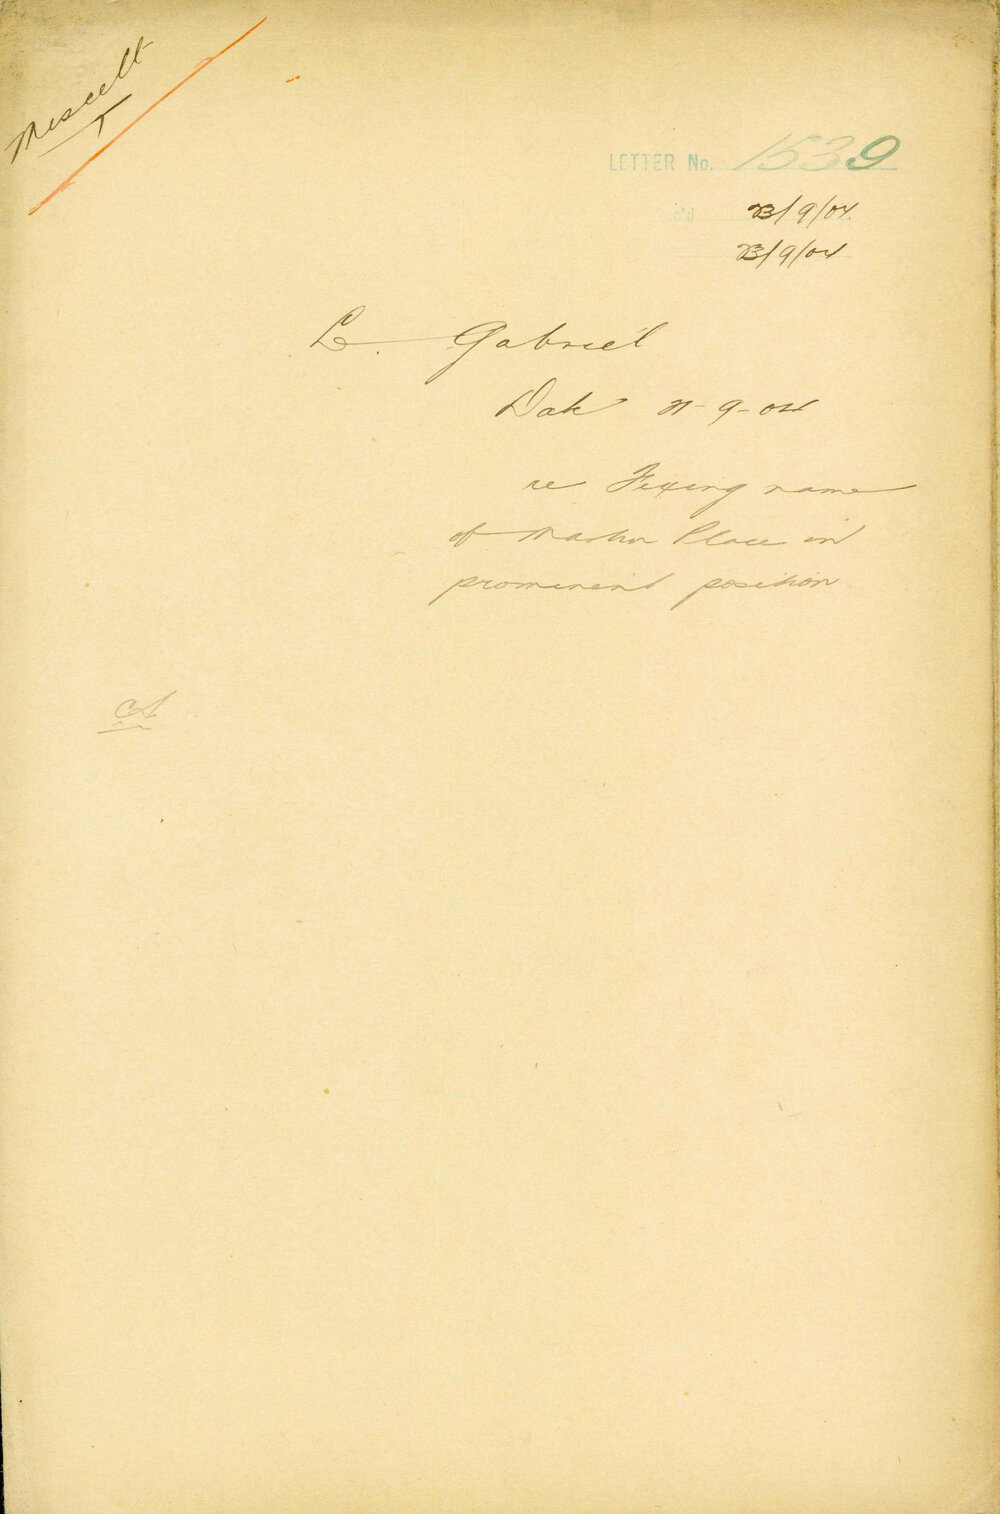 Miscell
LETTER No. 1539
Rec'd 23/9/04
23/9/04
L. Gabriel
Date 21-9-04
re Fixing name
of Martin Place in
prominent position